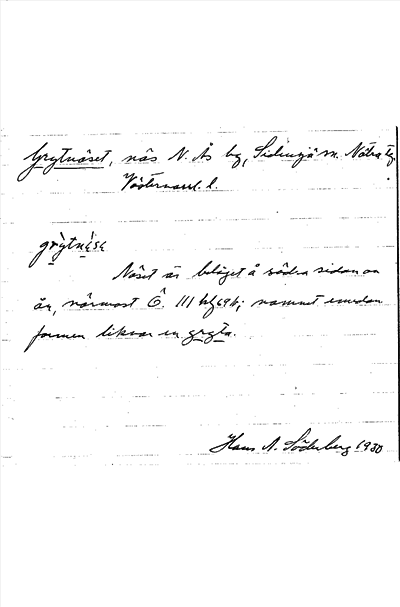 Grytnäset, näs N. Ås by, Sidensjö sn. Nätra tg.
Västernorrl. l.
grỳtnä̀sɛ
Näset är beläget å södra sidan om
ån, närmast Ö. III; namnet emedan
formen liknar en gryta.
Hans A. Söderberg 1930